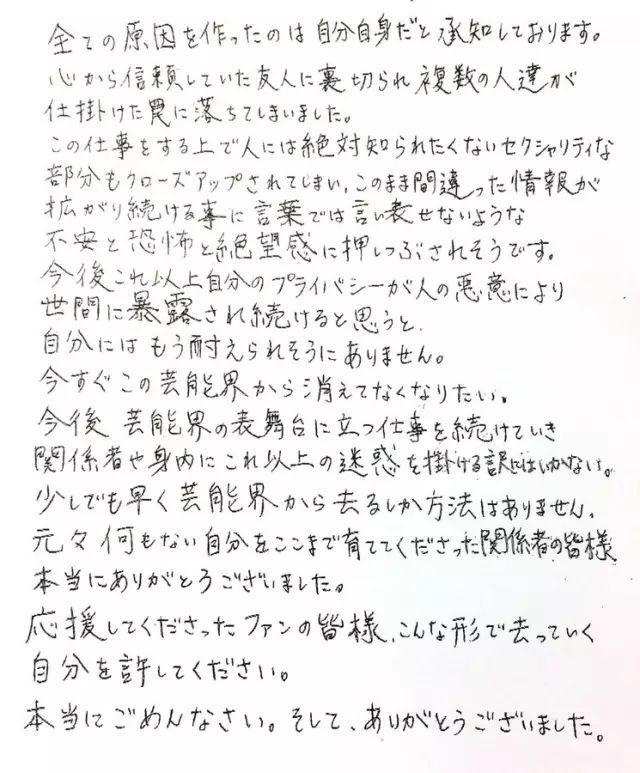 全ての原因を作ったのは自分自身だと承知しております。
心から信頼していた友人に裏切られ複数の人達が
仕掛けた罠に落ちてしまいました。
この仕事をする上で人には絶対知られたくないセクシャリティな
部分もクローズアップされてしまい、このまま間違った情報が
拡がり続ける事に言葉では言い表せないような
不安と恐怖と絶望感に押しつぶされそうです。
今後これ以上自分のプライバシーが人の悪意により
世間に暴露され続けると思うと、
自分にはもう耐えられそうにありません。
今すぐこの芸能界から消えてなくなりたい。
今後 芸能界の表舞台に立つ仕事を続けていき
関係者や身内にこれ以上の迷惑を掛ける訳にはいかない。
少しでも早く芸能界から去るしか方法はありません。
元々何もない自分をここまで育ててくださった関係者の皆様
本当にありがとうございました。
応援してくださったファンの皆様、こんな形で去っていく
自分を許してください。
本当にごめんなさい。そして、ありがとうございました。